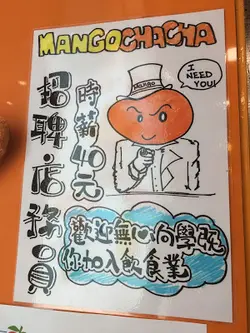 MANGOCHACHA
I NEED YOU!
Mango
招聘店務員
時薪40元
歡迎無心向學既
你加入飲食業